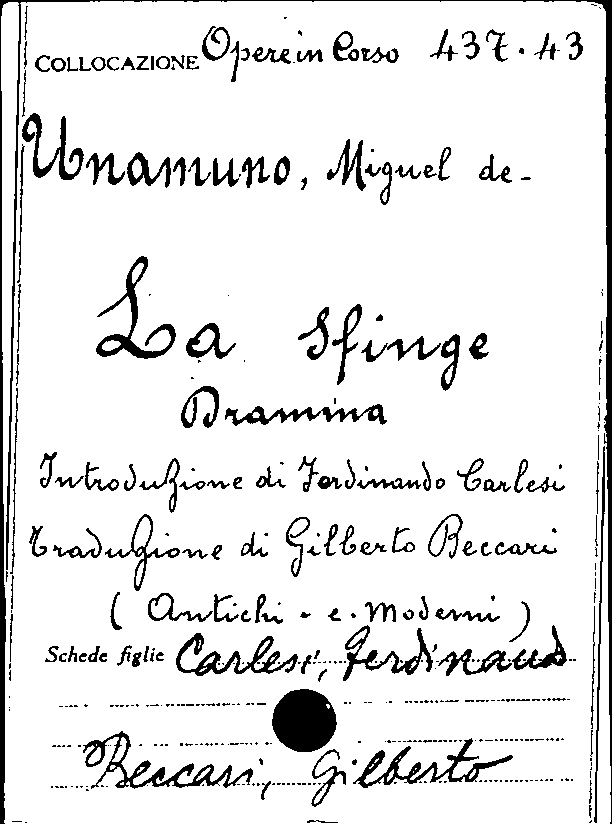 COLLOCAZIONE Opere in Corso 437.43
Unamuno, Miguel de-
La Sfinge
Dramma
Introduzione di Ferdinando Carlesi
Traduzione di Gilberto Beccari
(Antichi - e - Moderni)
Schede figlie Carlesi, Ferdinand
Beccari, Gilberto